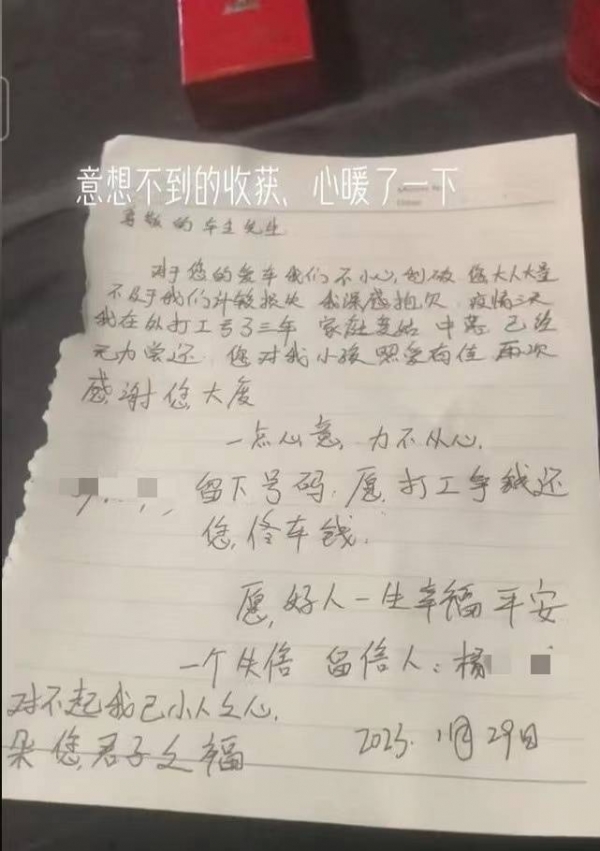 意想不到的收获、心暖了一下
尊敬的车主先生
对于您的爱车我们不小心,刮破 您大人大量
不及于我们计较损失 我深感抱欠 疫情三天
我在外打工亏了三年 家庭变始 中落 已经
无力尝还 您对我小孩照爱有佳 再次
感谢您大度
一点心意,力不从心,
留下号码,愿,打工争钱还
您,修车钱,
愿,好人一生幸福平安
一个失信 留信人:橘
对不起我已小人之心,
朵您,君子之福
2023.11月29日